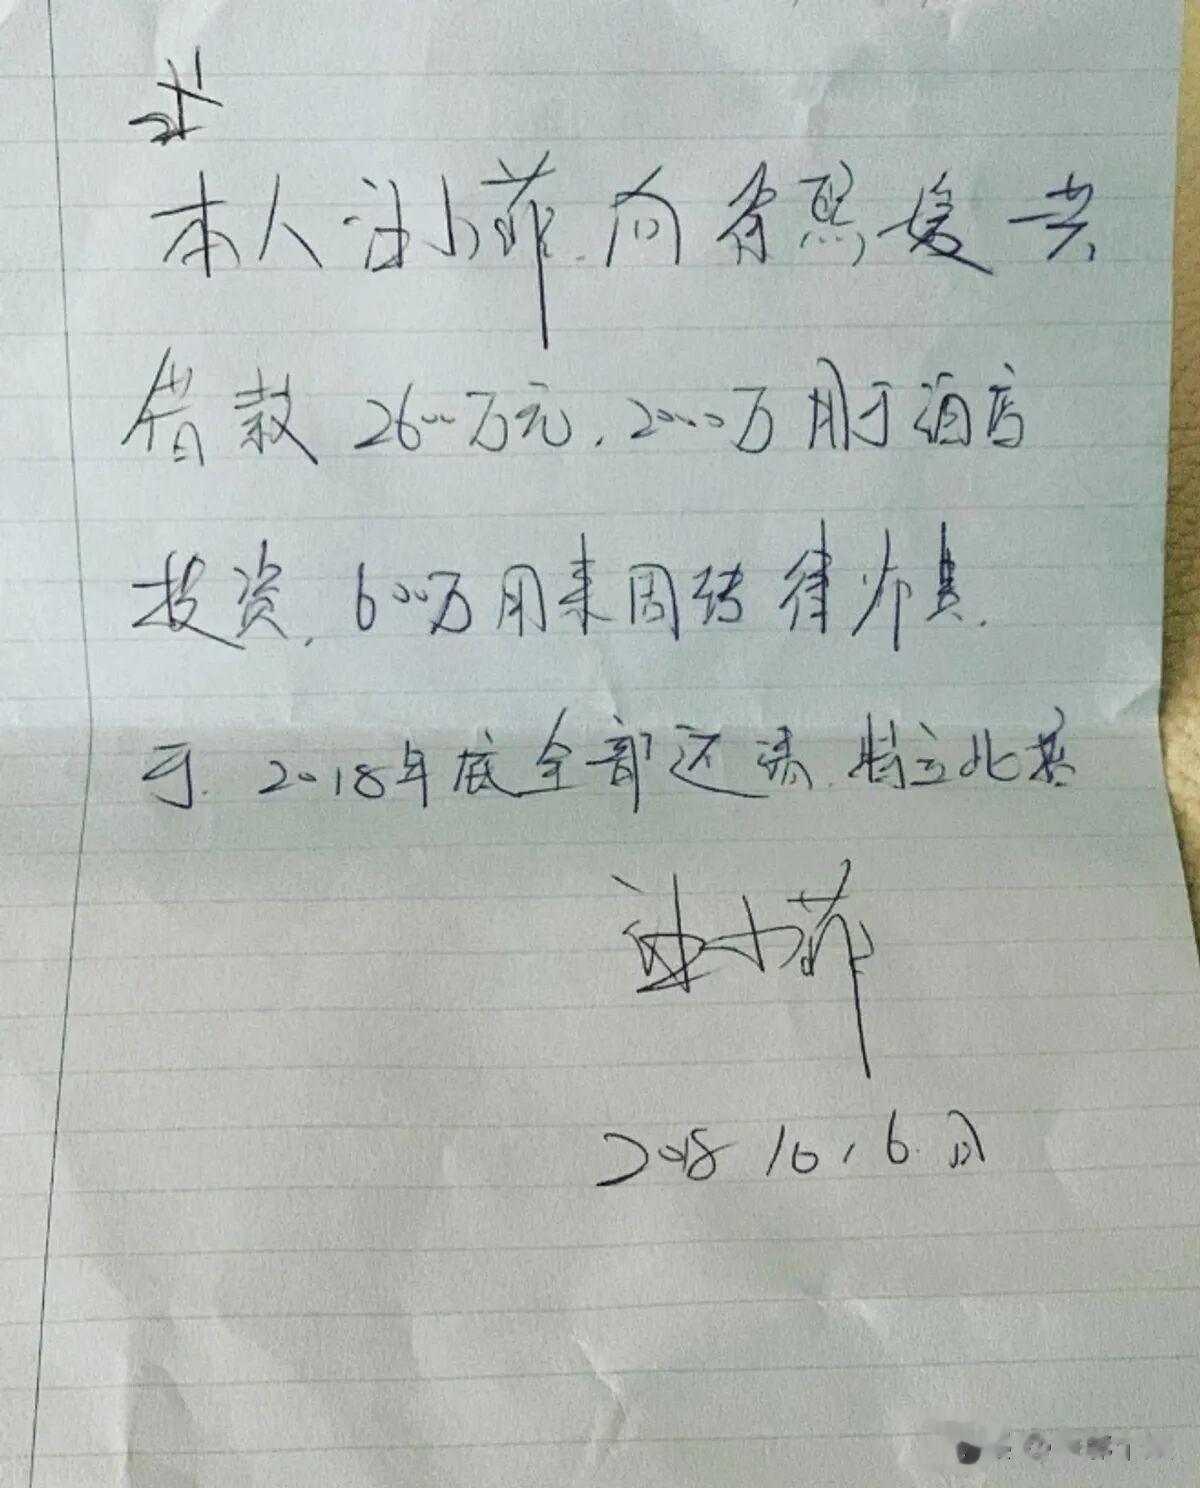 本人汪小菲向徐熙媛共
借款2600万元，2000万用于酒店
投资，600万用来周转律师费.
于.2018年底全部还清.特立此据
汪小菲
2018 10，6.